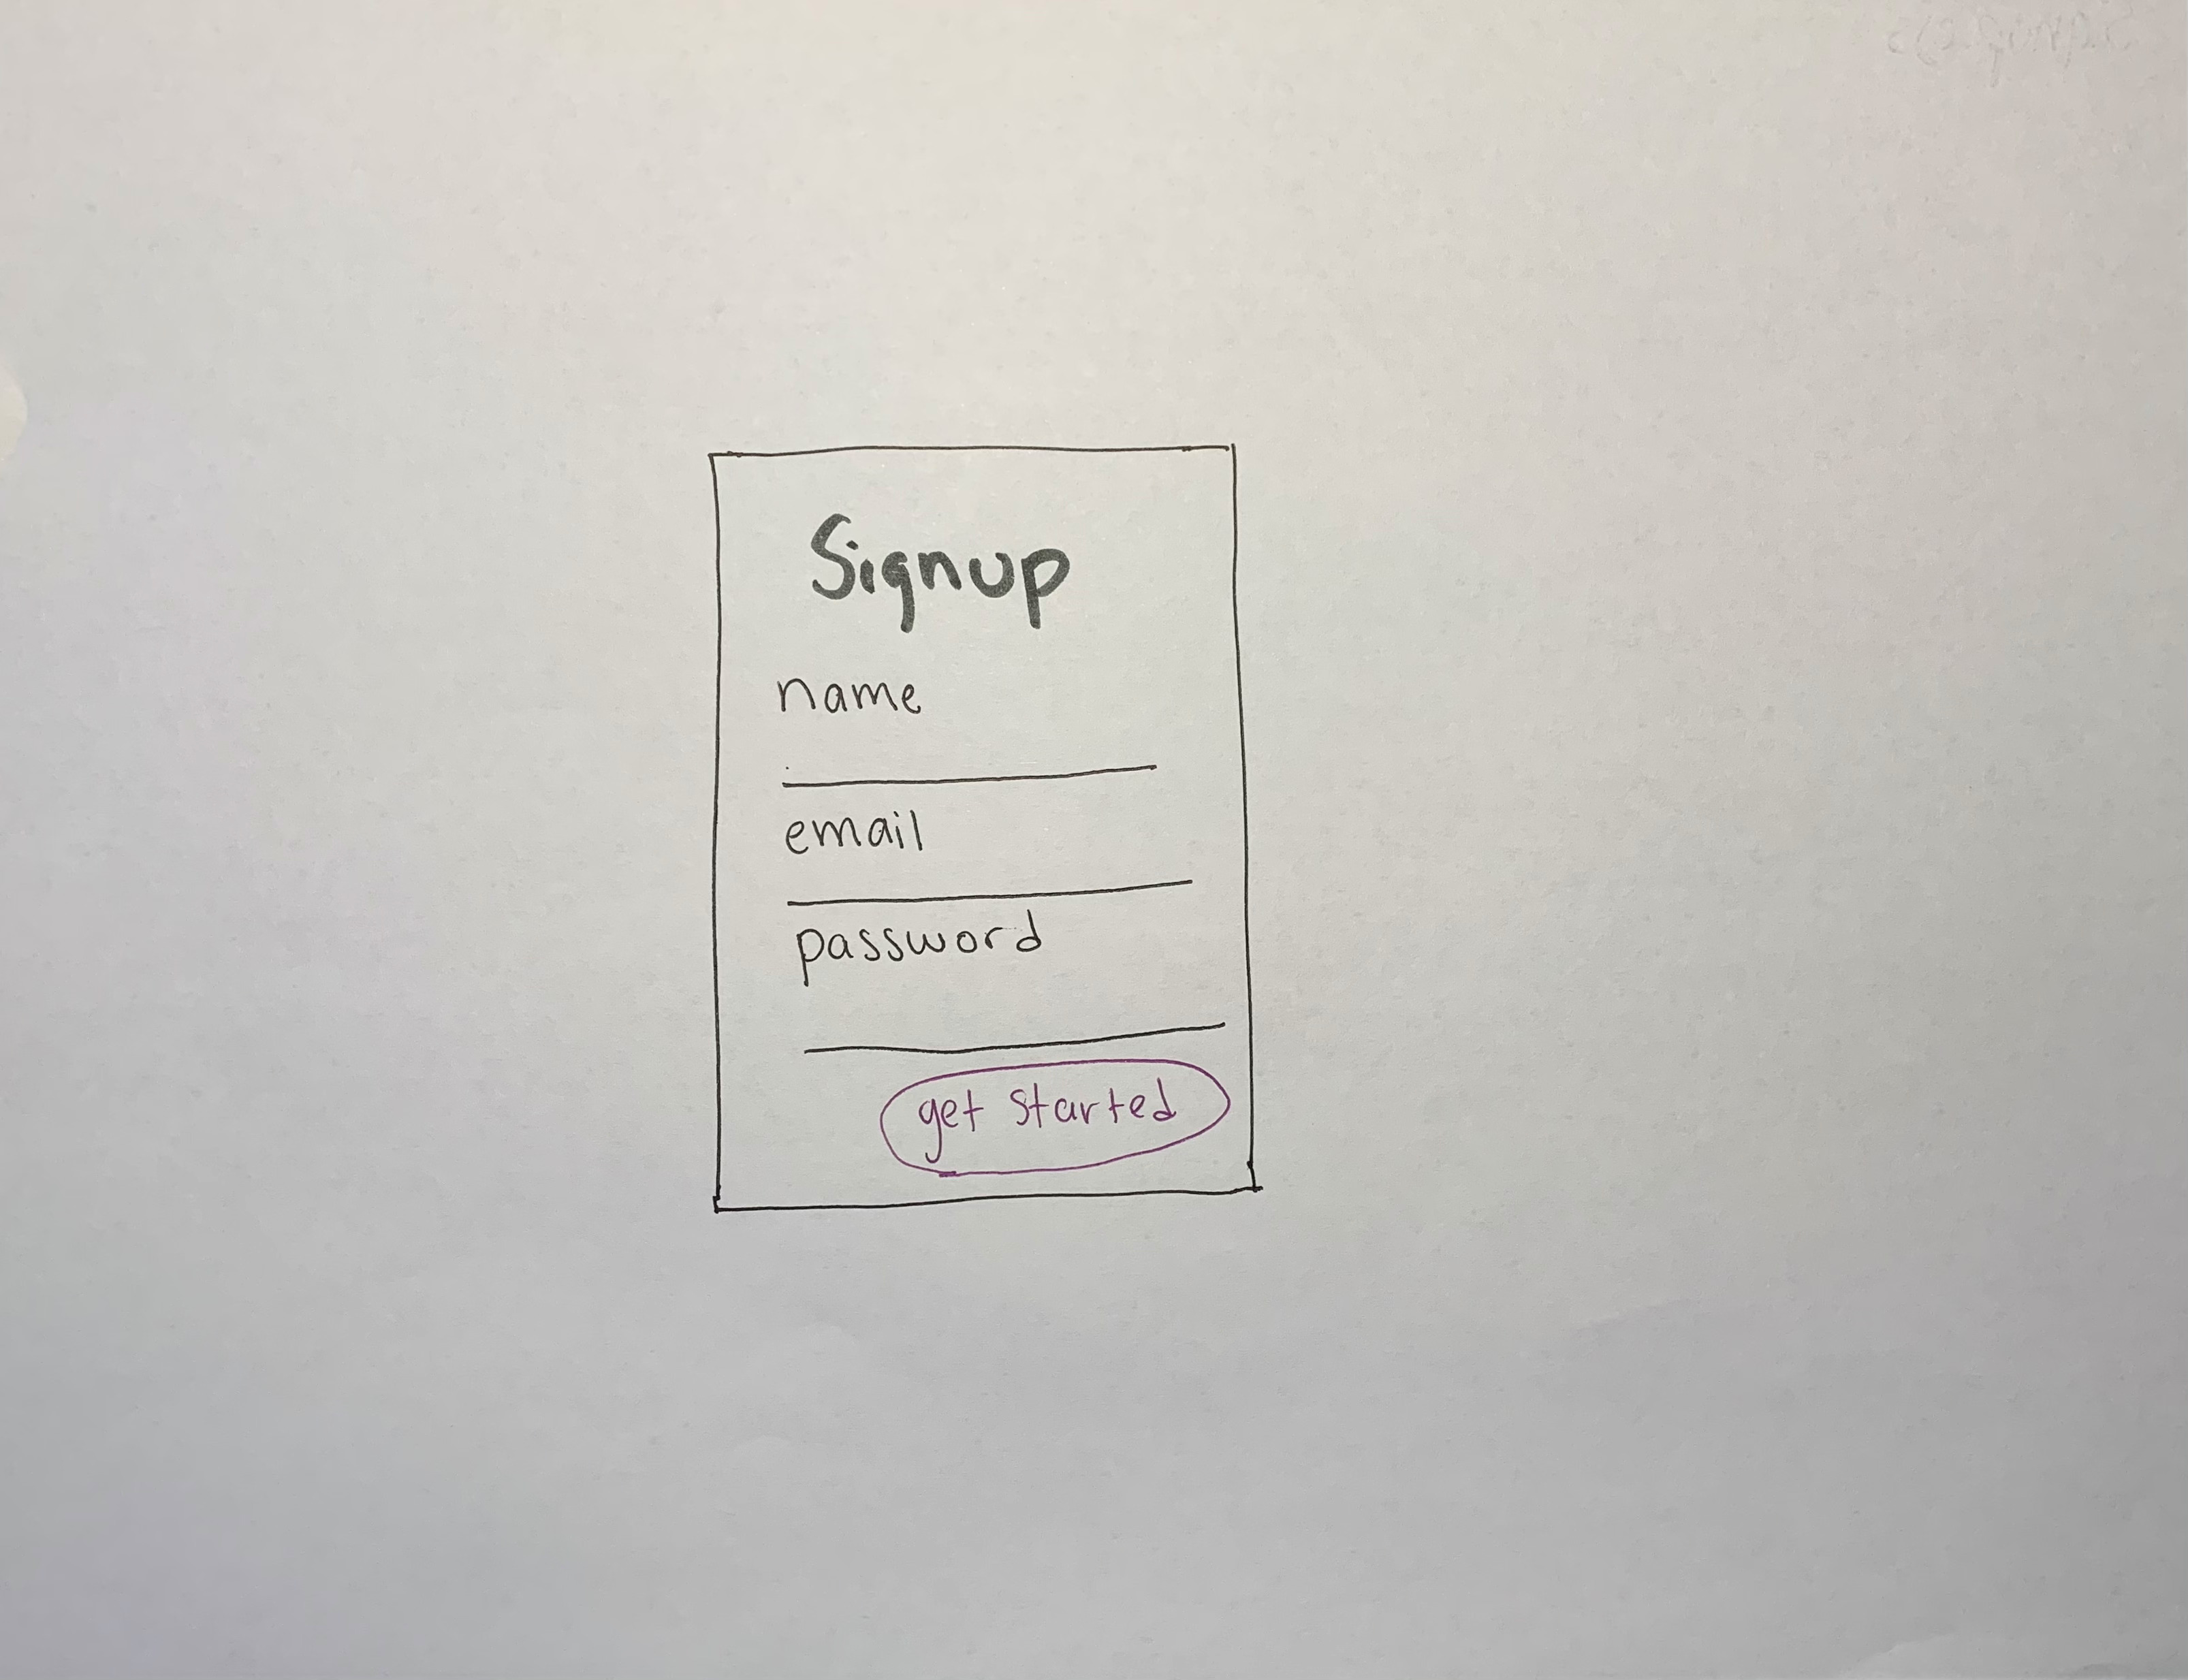 Signup
name
email
password
get started